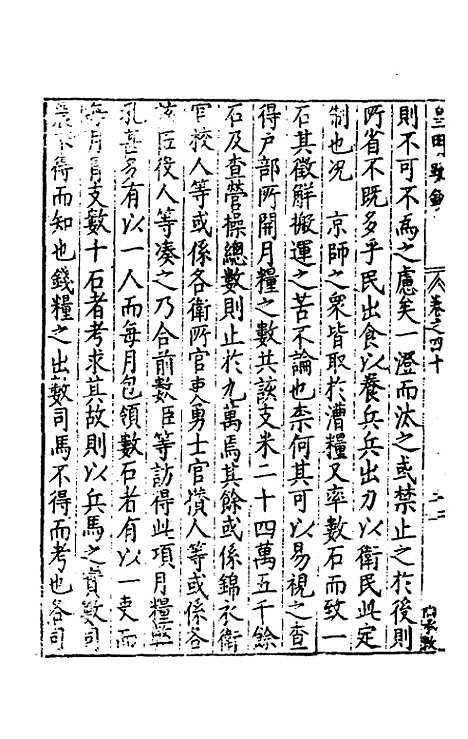 皇明疏鈔
卷之四十
則不可不為之慮矣一澄而汰之或禁止之於後則
所省不既多乎民出食以養兵兵出力以衛民此定
制也況　京師之衆皆取於漕糧又率數石而致一
石其徵解搬運之苦不論也柰何其可以易視之查
得户部所開月糧之數共該支米二十四萬五千餘
石及查營操總數則止於九萬焉其餘或係錦衣衛
官校人等或係各衛所官吏勇士官攢人等或係各
臣役人等凑之乃合前數臣等訪得此項月糧
孔甚多有以一人而每月包領數石者有以一吏而
每月冐支數十石者考求其故則以兵馬之實數司
農不得而知也錢糧之出數司馬不得而考也各司